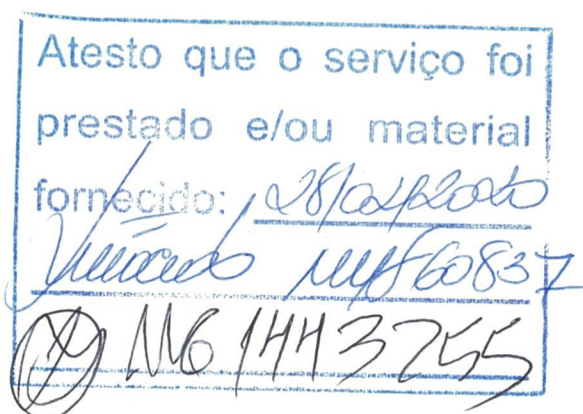 Atesto que o serviço foi
prestado e/ou material
fornecido: 28/02/2020
60837
MG 1443255